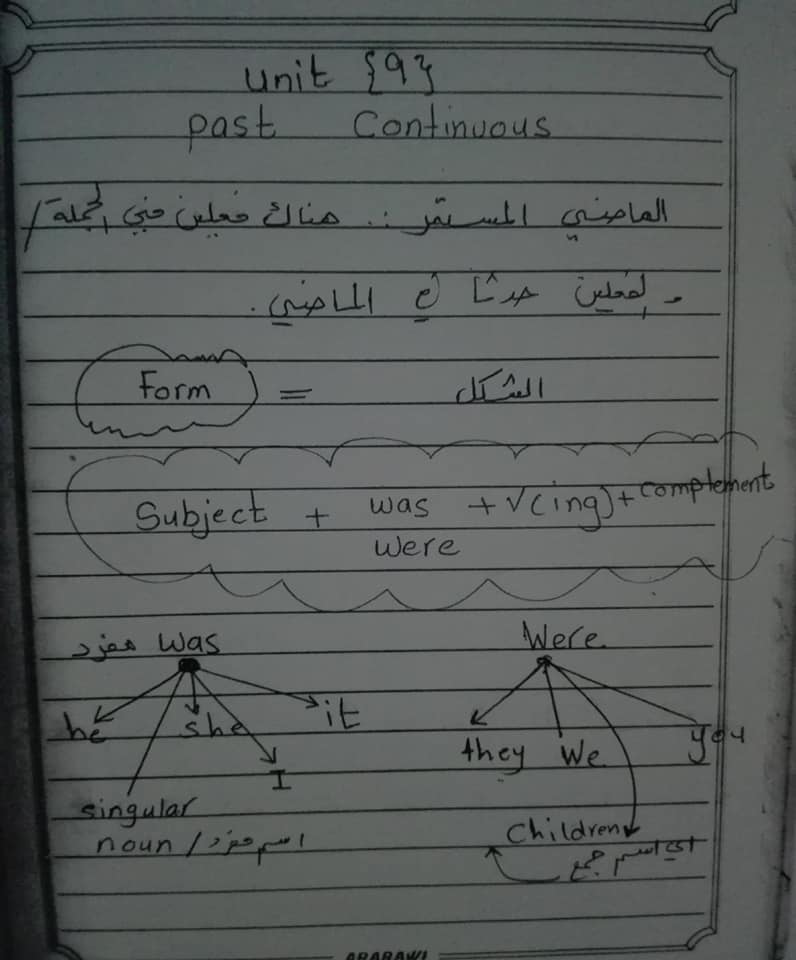 unit {9}
past Continuous
الماضي المستمر :. هناك فعلين في الجملة /
و لفعلين حدثا في الماضي .
Form = الشكل
Subject + was + V(ing) + complement
were
مفرد was
Were
he she it
I
they We you
singular
noun / اسم مفرد
Children
اي اسم جمع
ARARAWI